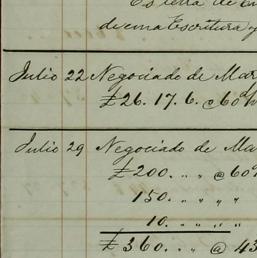 Estilla de
de una Escritura y
Julio 22 Negociado de Mar
£26. 17. 6. @ 60
Julio 29 Negociado de Ma
£200. „ „ @ 60
150. „ „ „ „
10. „ „ „ „
£360. „ @ 43